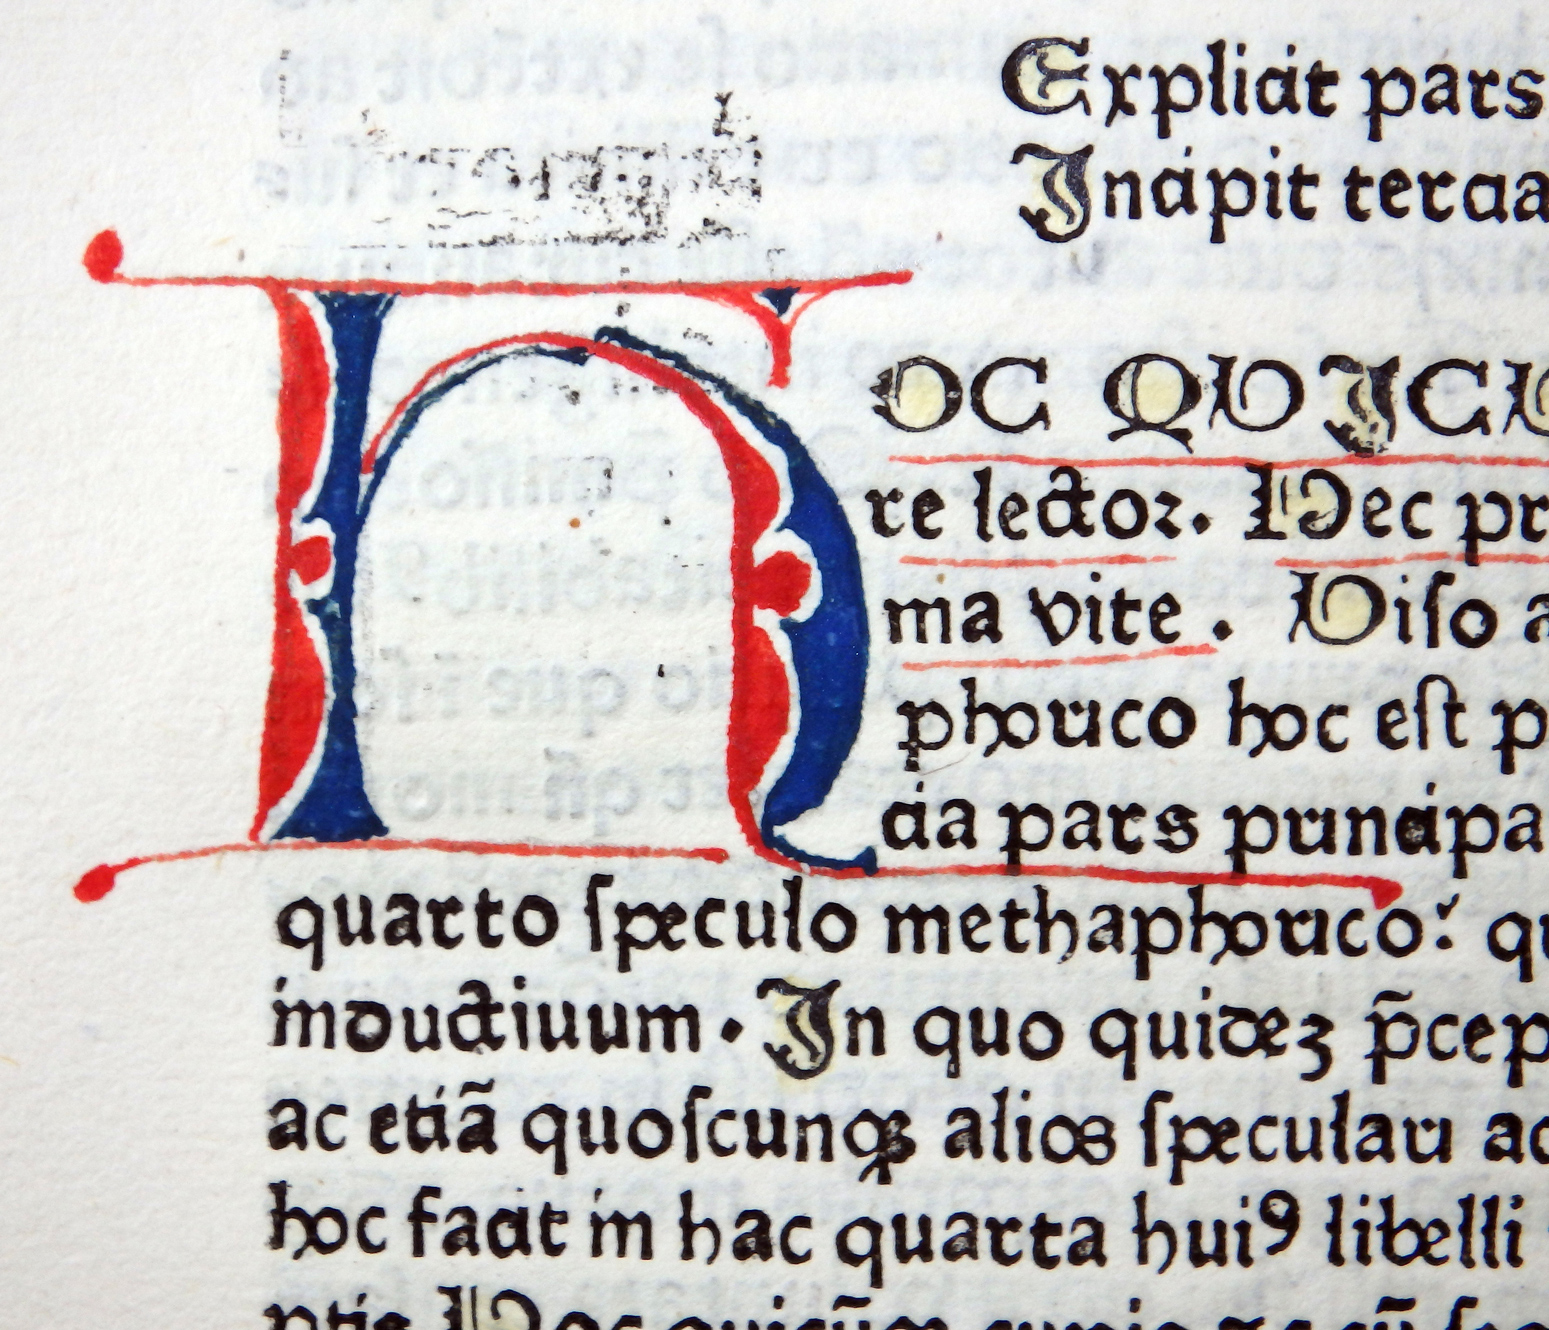 Explicit pars
Incipit tercia
HOC QUICU
re lector. Hec pr
ma vite. Viſo a
phorico hoc eſt p
cia pars principa
quarto ſpeculo methaphorico: qu
inductiuum. In quo quideʒ p̄cep
ac etiā quoſcunqꝫ alios ſpeculari ac
hoc facit in hac quarta huiꝰ libelli
ptis Hoc